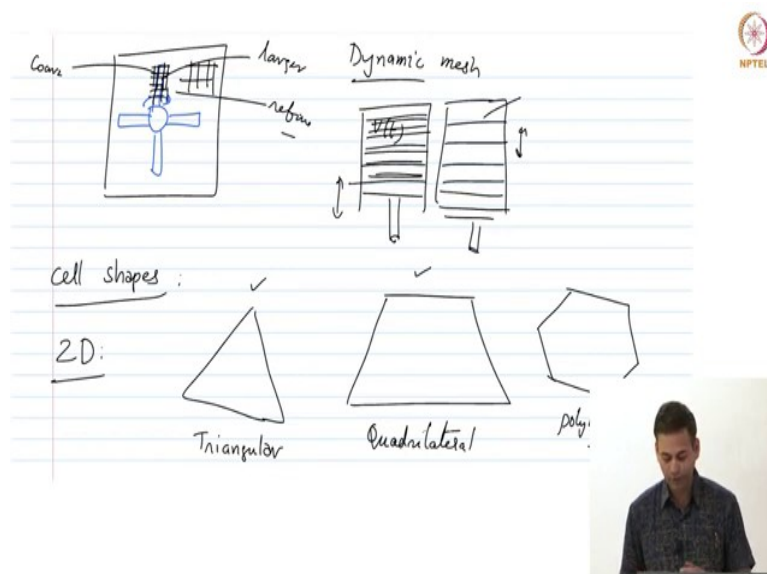 Coarse
larger
refine
Dynamic mesh
V(t)
Cell shapes :
2D:
Triangular
Quadrilateral
poly
NPTEL